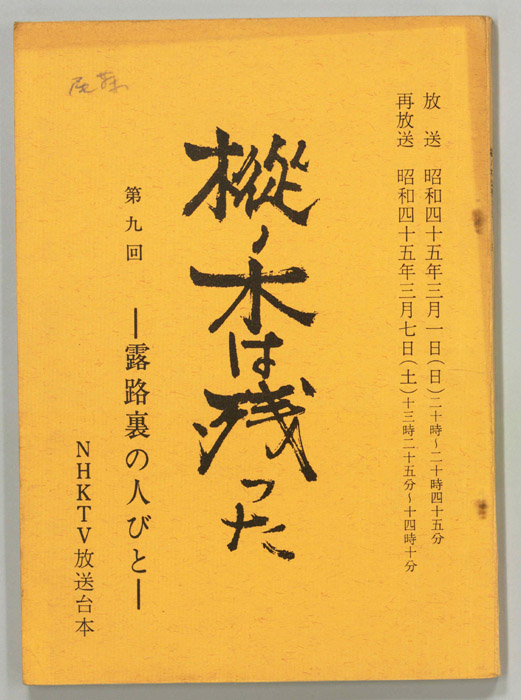 放送　昭和四十五年三月一日（日）二十時～二十時四十五分
再放送　昭和四十五年三月七日（土）十三時二十五分～十四時十分
樅ノ木は残った
第九回　―露路裏の人びと―
NHKTV放送台本